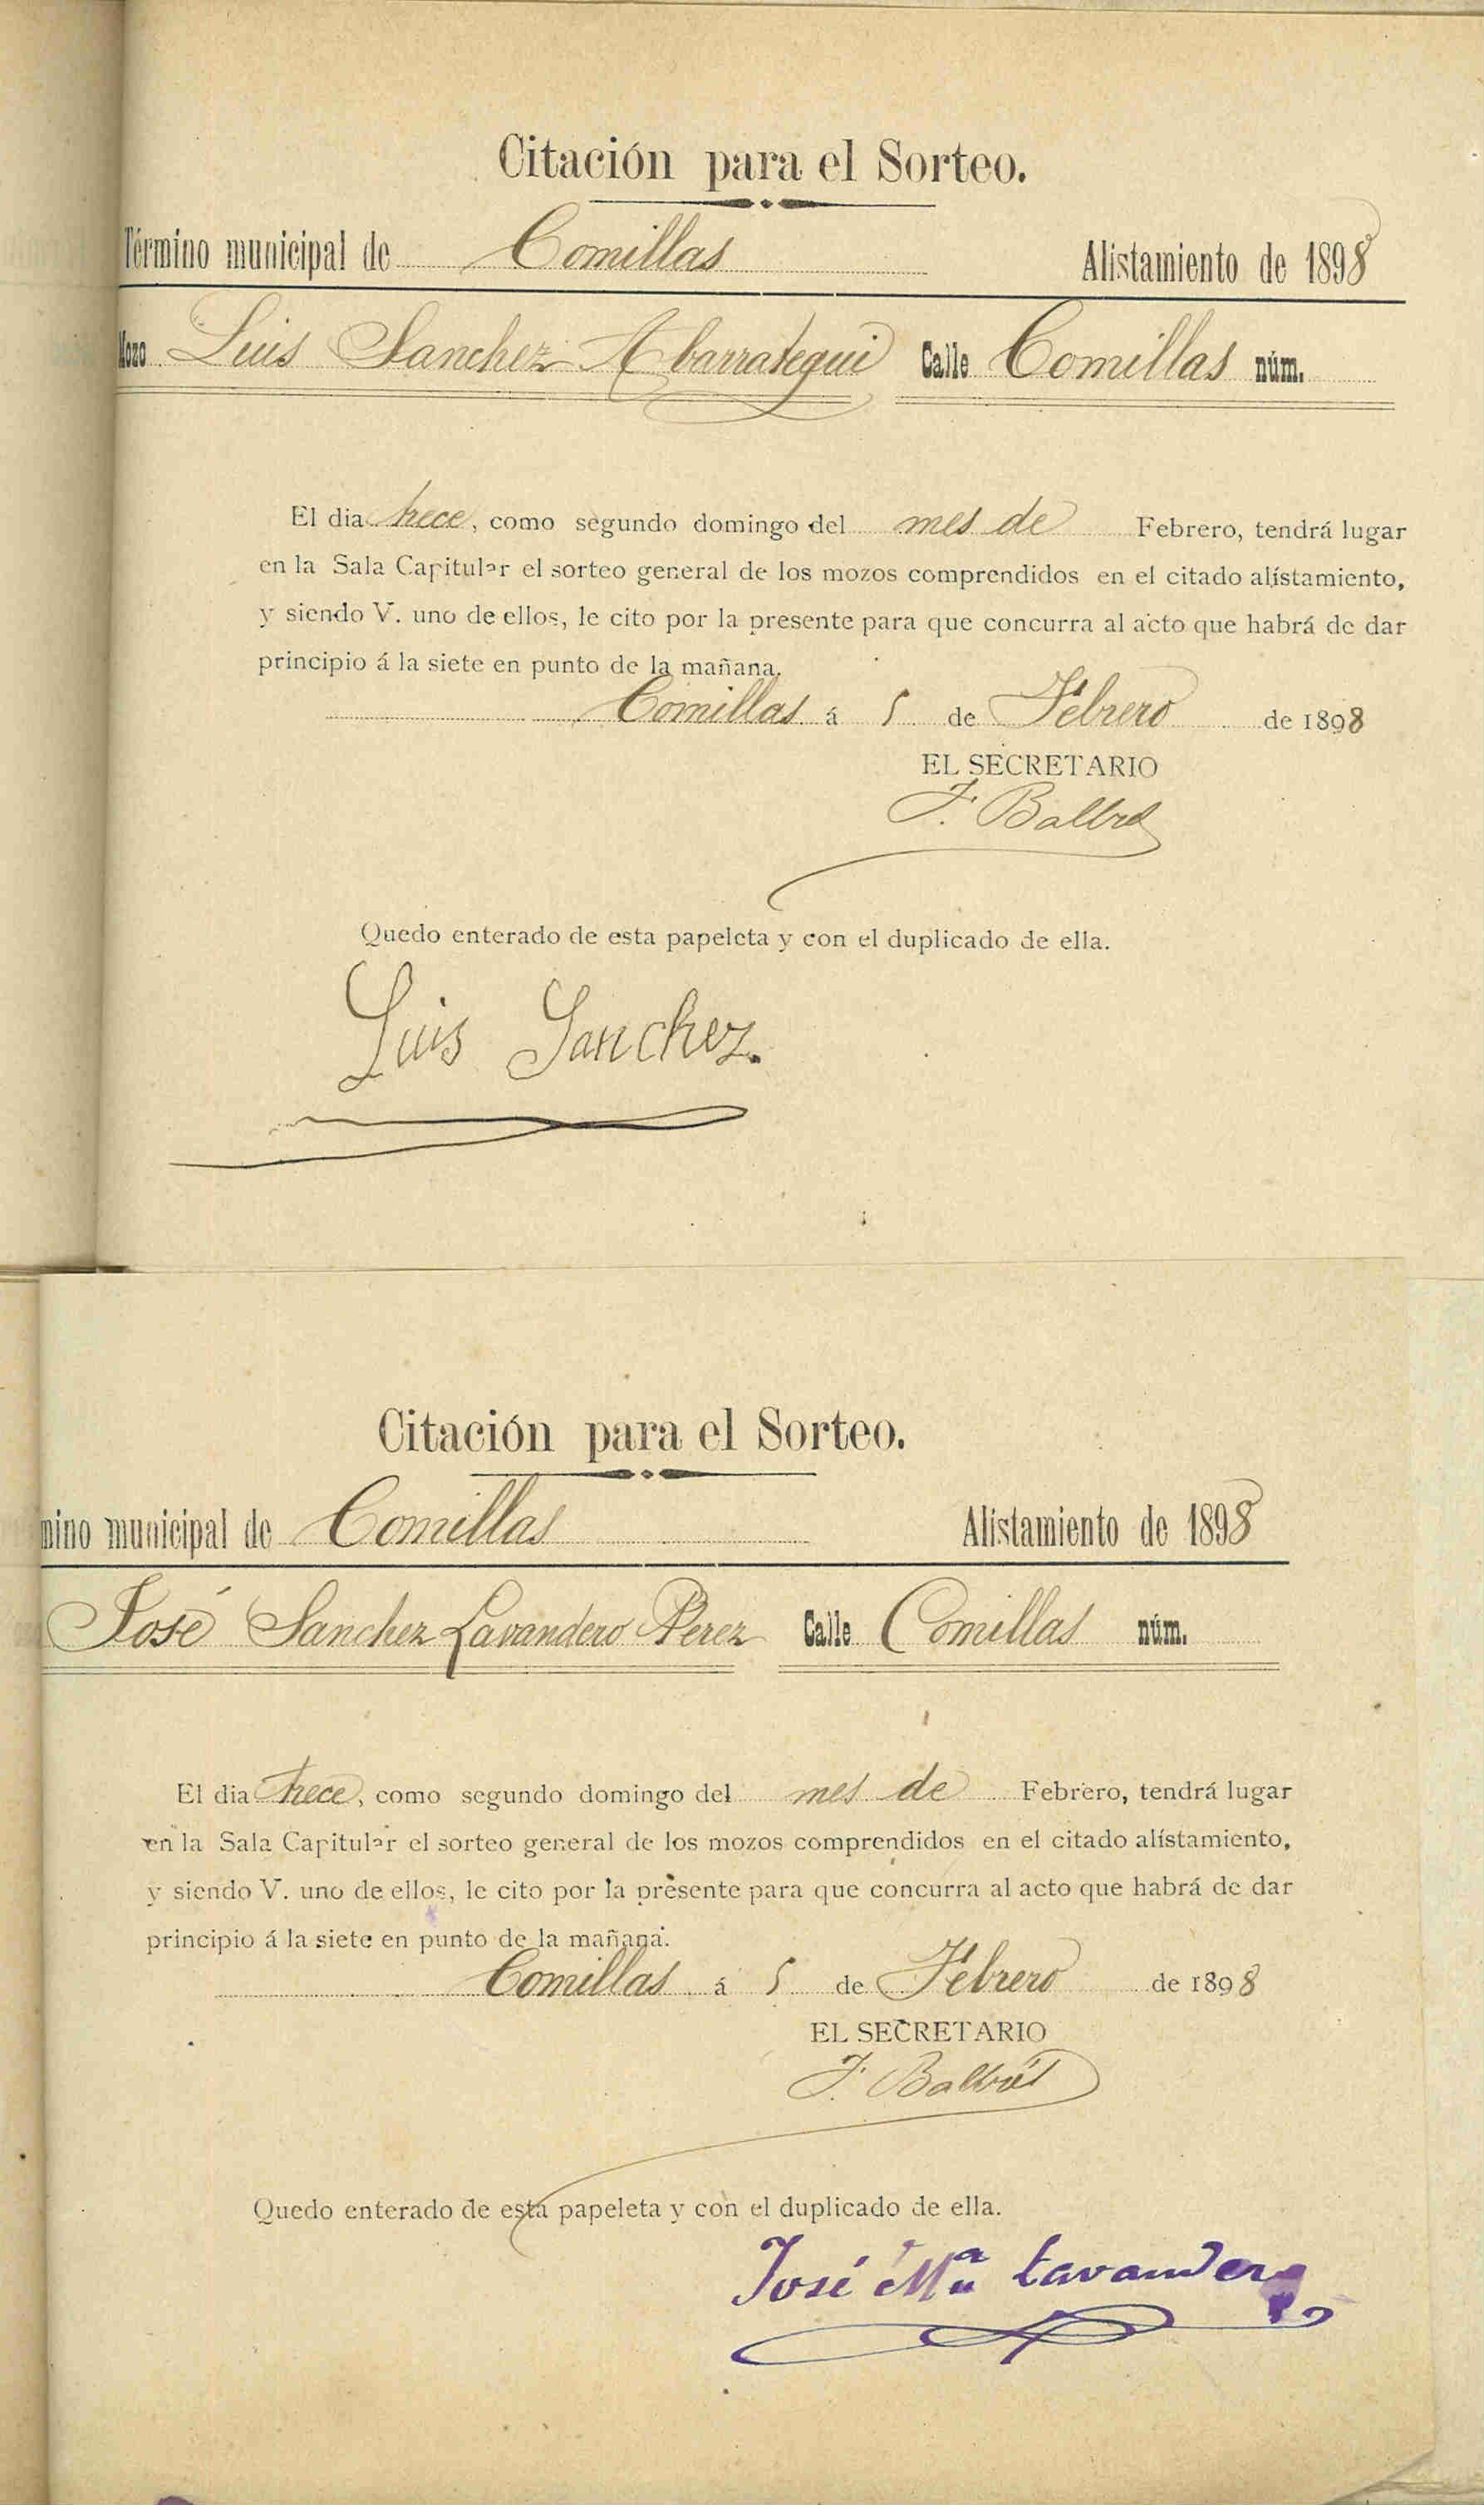 Citación para el Sorteo.
Término municipal de Comillas Alistamiento de 1898
Mozo Luis Sanchez Abarrategui Calle Comillas núm.
El dia trece, como segundo domingo del mes de Febrero, tendrá lugar
en la Sala Capitular el sorteo general de los mozos comprendidos en el citado alistamiento,
y siendo V. uno de ellos, le cito por la presente para que concurra al acto que habrá de dar
principio á la siete en punto de la mañana.
Comillas á 5 de Febrero de 1898
EL SECRETARIO
F. Balbás
Quedo enterado de esta papeleta y con el duplicado de ella.
Luis Sanchez.
Citación para el Sorteo.
mino municipal de Comillas Alistamiento de 1898
José Sanchez Lavandero Perez Calle Comillas núm.
El dia trece, como segundo domingo del mes de Febrero, tendrá lugar
en la Sala Capitular el sorteo general de los mozos comprendidos en el citado alistamiento,
y siendo V. uno de ellos, le cito por la presente para que concurra al acto que habrá de dar
principio á la siete en punto de la mañana.
Comillas á 5 de Febrero de 1898
EL SECRETARIO
F. Balbás
Quedo enterado de esta papeleta y con el duplicado de ella.
José Mª Lavandero